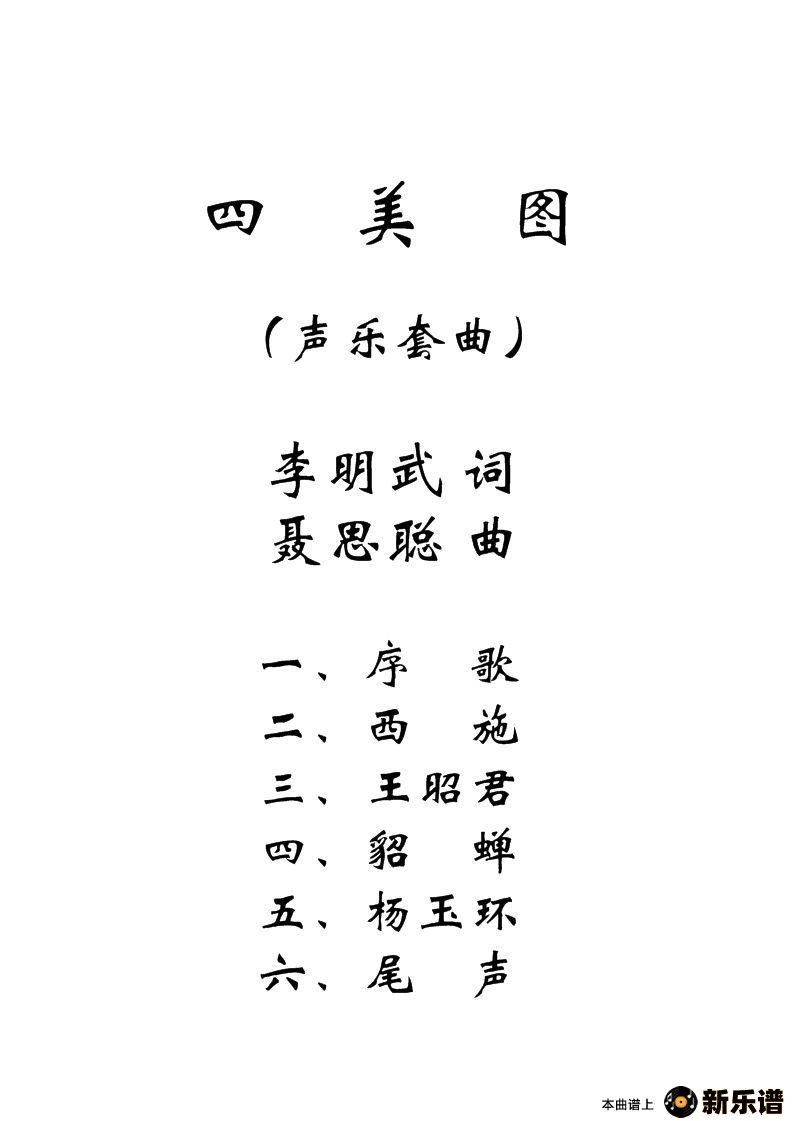 四美图
（声乐套曲）
李明武 词
聂思聪 曲
一、序歌
二、西施
三、王昭君
四、貂蝉
五、杨玉环
六、尾声
本曲谱上 新乐谱